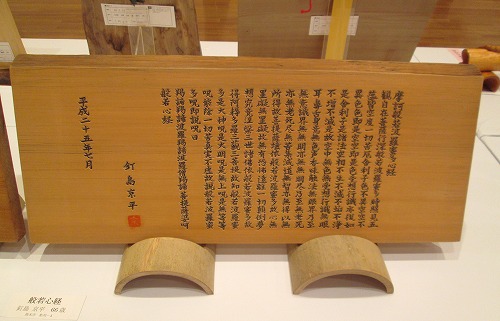 摩訶般若波羅蜜多心経
観自在菩薩行深般若波羅蜜多時照見五
蘊皆空度一切苦厄舎利子色不異空空不
異色色即是空空即是色受想行識亦復如
是舎利子是諸法空相不生不滅不垢不浄
不増不減是故空中無色無受想行識無眼
耳鼻舌身意無色声香味触法無眼界乃至
無意識界無無明亦無無明尽乃至無老死
亦無老死尽無苦集滅道無智亦無得以無
所得故菩提薩埵依般若波羅蜜多故心無
罣礙無罣礙故無有恐怖遠離一切顛倒夢
想究竟涅槃三世諸仏依般若波羅蜜多故
得阿耨多羅三藐三菩提故知般若波羅蜜
多是大神呪是大明呪是無上呪是無等等
呪能除一切苦真実不虚故説般若波羅蜜
多呪即説呪曰
羯諦羯諦波羅羯諦波羅僧羯諦菩提薩婆呵
般若心経
平成二十五年七月
釘島京平
般若心経
釘島 京平 66歳